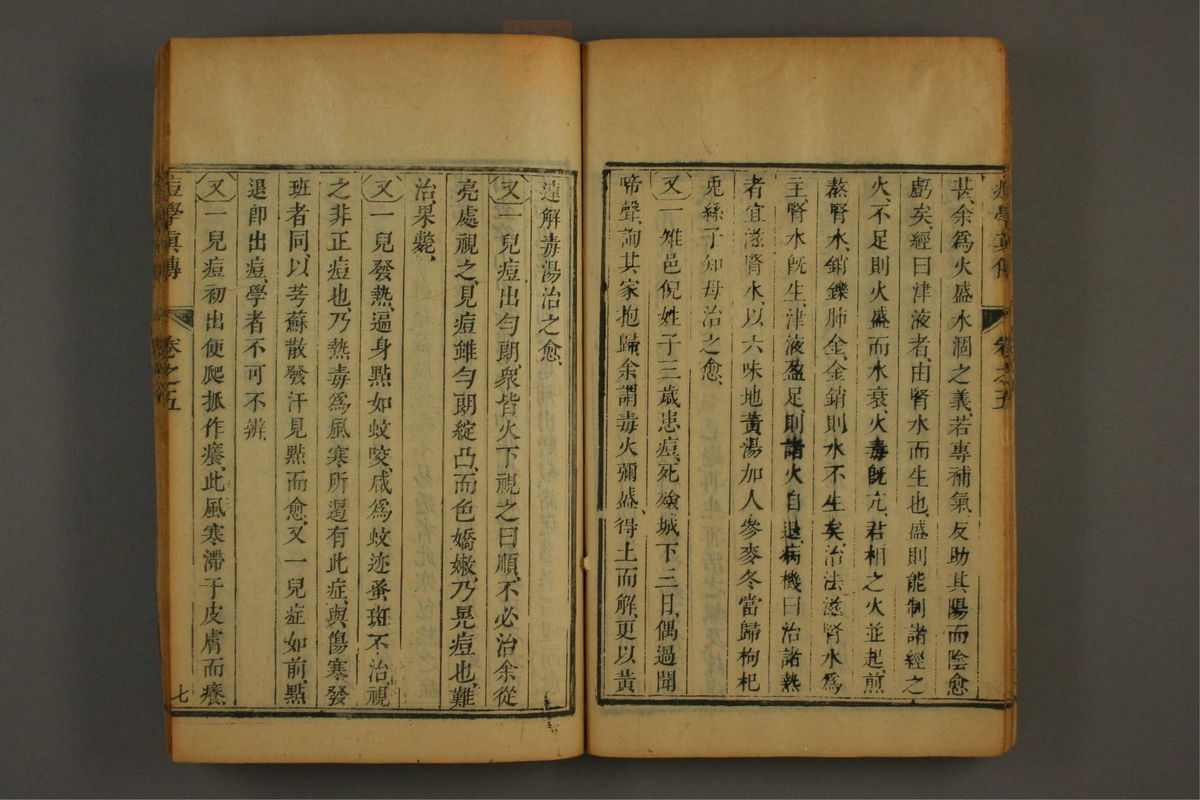 甚余爲火盛水涸之義若專補氣反助其陽而陰愈
虧矣經曰津液者由腎水而生也盛則能制諸經之
火不足則火盛而水衰火毒旣亢君相之火並起煎
熬腎水銷鑠肺金金銷則水不生矣治法滋腎水爲
主腎水旣生津液盈足則諸火自退病機曰治諸熱
者宜滋腎水以六味地黃湯加人參麥冬當歸枸杞
兎絲子知母治之愈
又一雉邑倪姓子三歲患痘死殮城下三日偶過聞
啼聲詢其家抱歸余謂毒火彌盛得土而解更以黃
連解毒湯治之愈
又一兒痘出勻朗衆皆火下視之曰順不必治余從
亮處視之見痘雖勻朗綻凸而色嬌嫩乃晃痘也難
治果斃
又一兒發熱遍身點如蚊咬咸爲蚊迹蚤斑不治視
之非正痘也乃熱毒爲風寒所遏有此症與傷寒發
班者同以芎蘇散發汗見點而愈又一兒症如前點
退卽出痘學者不可不辨
又一兒痘初出便爬抓作癢此風寒滯于皮膚而癢
痘學眞傳
卷之五
七